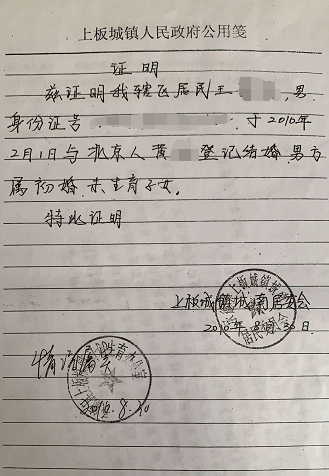 上板城镇人民政府公用笺
证明
兹证明我辖区居民王 男,
身份证号 于2010年
2月1日与北京人黄 登记结婚,男方
属初婚,未生育子女。
特此证明
上板城镇城南居委会
2010年8月30日
情况属实
8.30